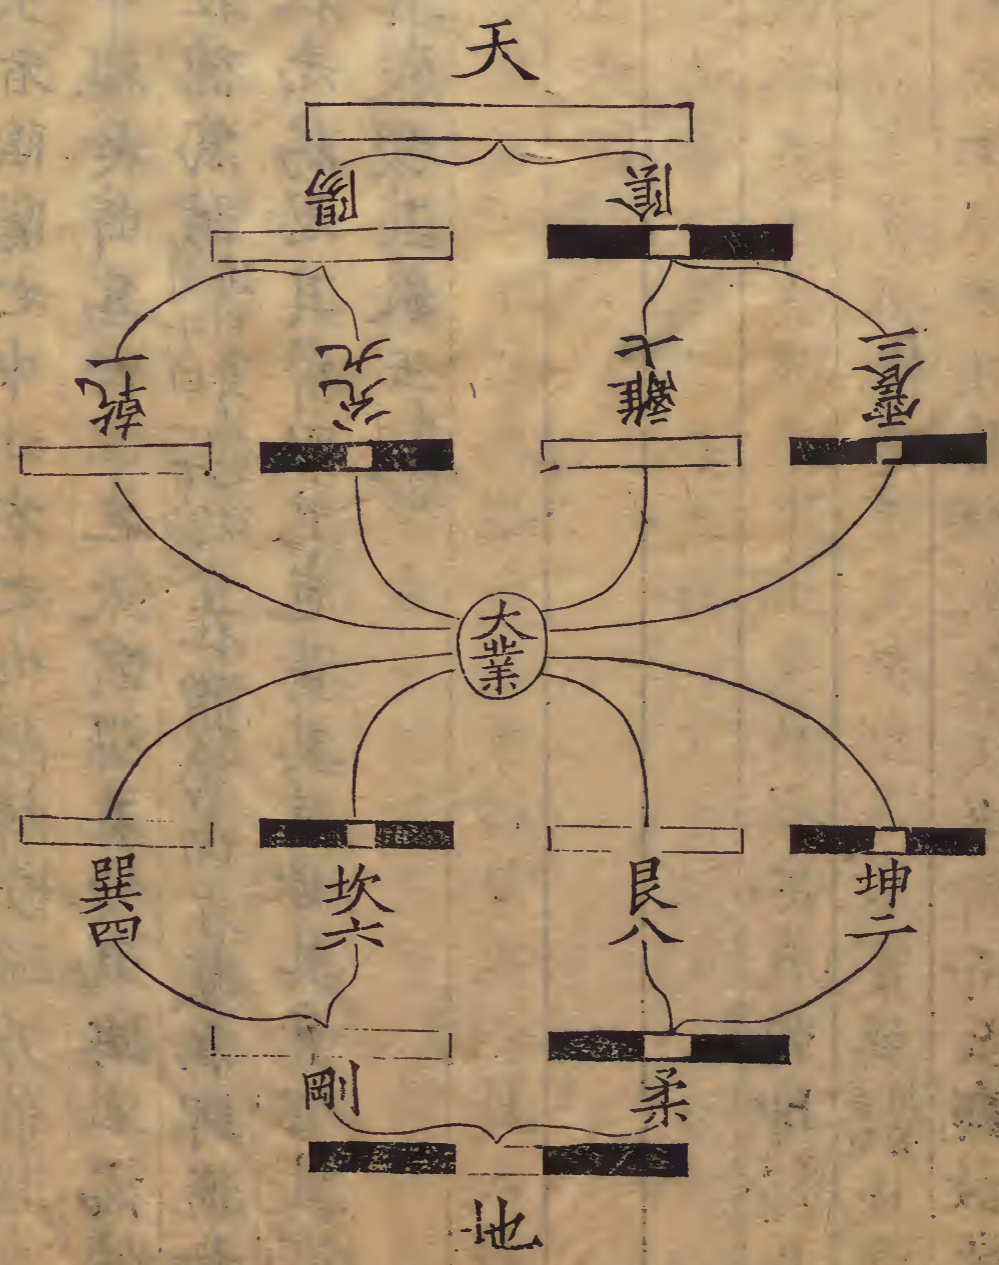 天
陽
陰
乾一
兌九
離七
震三
大業
巽四
坎六
艮八
坤二
剛
柔
地